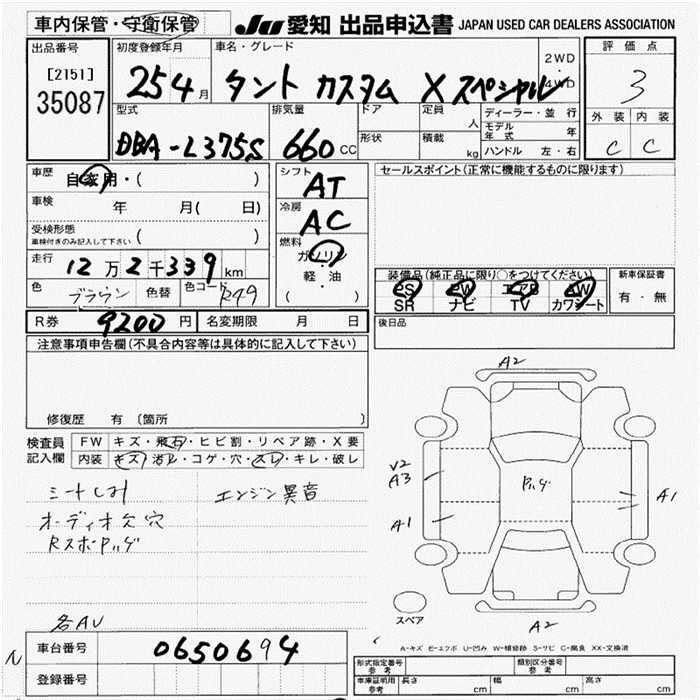 車内保管・守衛保管
JU 愛知 出品申込書 JAPAN USED CAR DEALERS ASSOCIATION
出品番号
[2151]
35087
初度登録年月
25 4月
車名・グレード
タント カスタム X スペシャル
2WD
・
4WD
評価点
3
外装 内装
C C
型式
DBA-L375S
排気量
660 CC
ドア
形状
定員
人
積載
kg
ディーラー・並行
モデル年式 年
ハンドル 左・右
車歴
自家用・( )
車検
年 月( 日)
受検形態
車検付きのみ記入して下さい ( )
走行
12万2千339 km
色
ブラウン
色替
色コード
R49
シフト
AT
冷房
AC
燃料
ガソリン
軽・油
( ・ )
セールスポイント(正常に機能するものに限ります)
装備品(純正品に限り○をつけてください)
PS PW エアB AW
SR ナビ TV カワシート
新車保証書
有・無
R券 9200円
名変期限 月 日
後日品
注意事項申告欄(不具合内容等は具体的に記入して下さい)
修復歴 有 〔箇所 〕
検査員
記入欄
FW キズ・飛石・ヒビ割・リペア跡・X要
内装 キズ・汚レ・コゲ・穴・スレ・キレ・破レ
シートしみ
エンジン異音
オーディオ欠 穴
RスポPハゲ
名AU
A2
Pハゲ
V2
A3
A1
A1
A2
スペア
A-キズ E-エクボ U-凹み W-補修跡 S-サビ C-腐食 XX-交換済
車台番号
0650694
登録番号
形式指定番号
参考
類別区分番号
参考
車庫証明用
参考
長さ cm 幅 cm 高さ cm